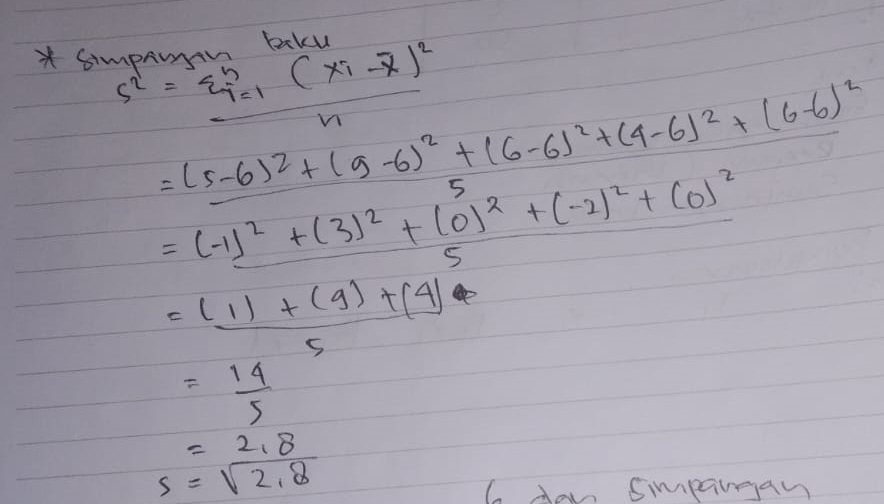 * Simpangan baku
s² = Σⁿᵢ₌₁ (xi - x̄)²
n
= (5-6)² + (9-6)² + (6-6)² + (4-6)² + (6-6)²
5
= (-1)² + (3)² + (0)² + (-2)² + (0)²
5
= (1) + (9) + (4)
5
= 14
5
= 2,8
s = √2,8
6 dan Simpangan